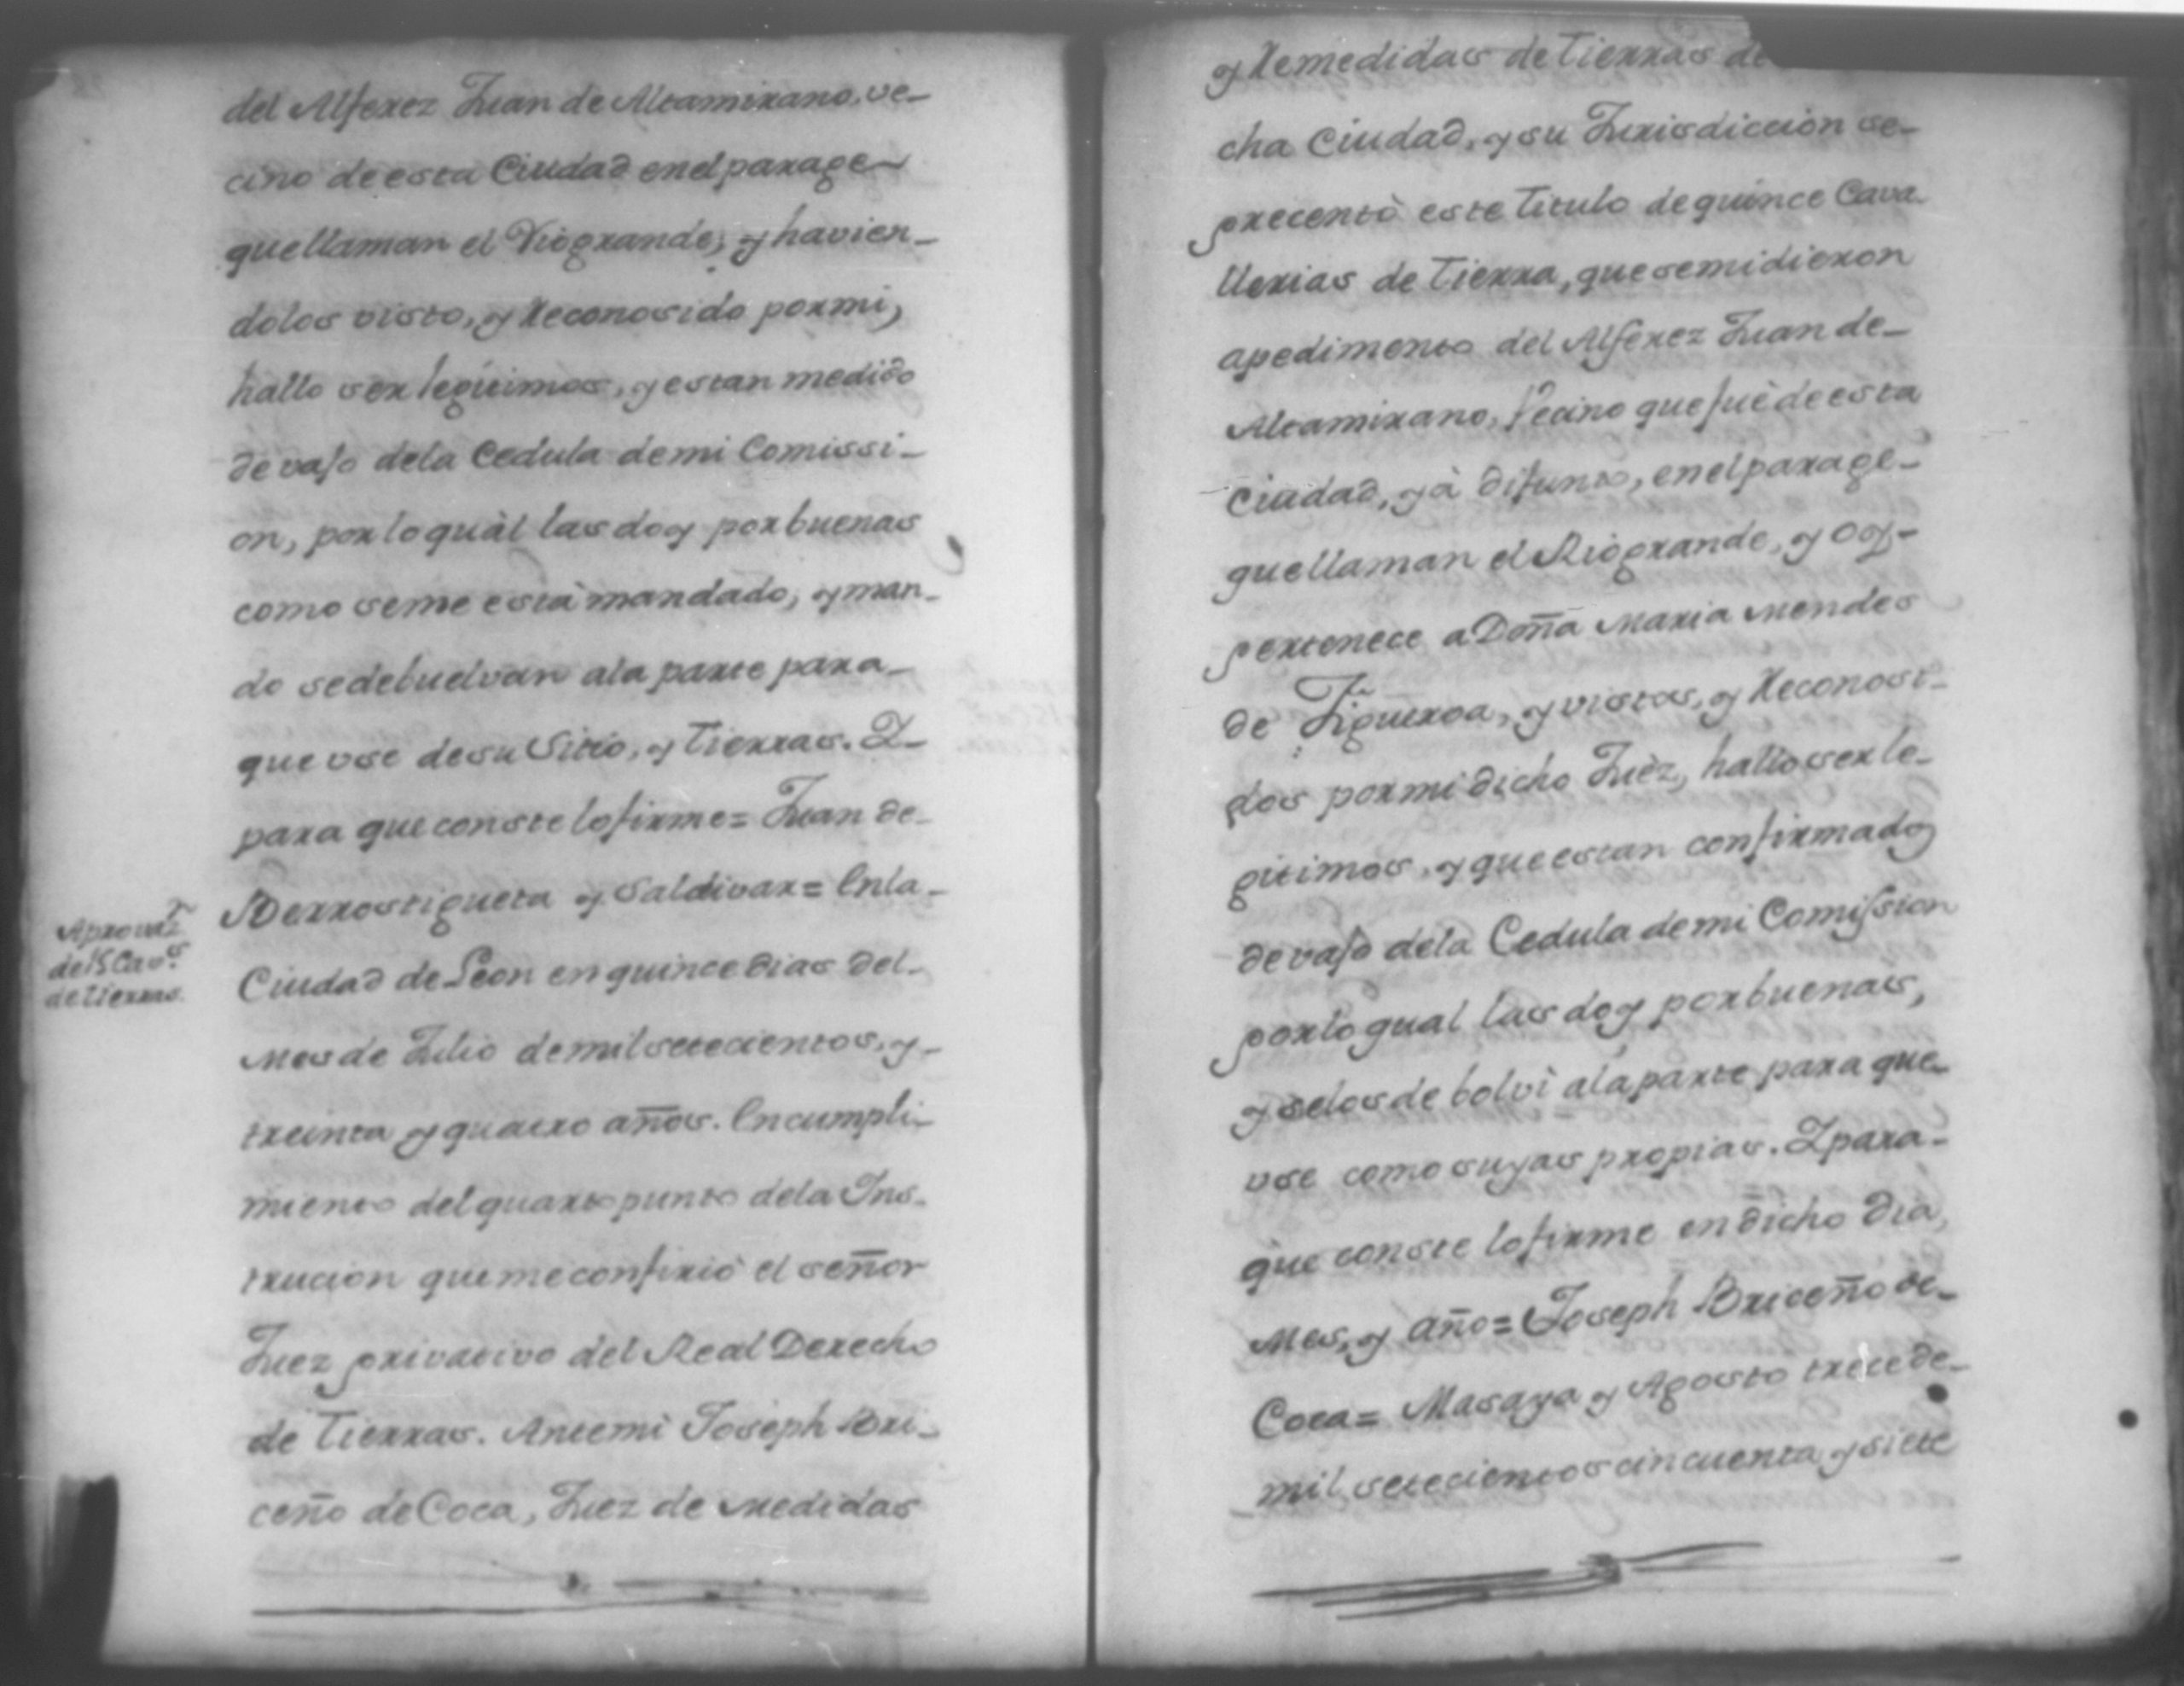 del Alferez Juan de Altamirano, ve-
cino de esta Ciudad en el parage
que llaman el Riogrande, y havien-
dolos visto, y Reconosido por mi,
hallo ser legitimos, y estan medido
de vajo de la Cedula de mi Comissi-
on, por lo quàl las doy por buenas
como se me està mandado, y man-
do se debuelvan a la parte para
que use de su Sitio, y tierras. Y
para que conste lo firme = Juan de
Berrostigueta y Saldivar = En la
Aprovaz.
de 15 Cavs.
de tierras.
Ciudad de Leon en quince dias del
Mes de Julio de mil setecientos, y
treinta y quatro años. En cumpli-
miento del quarto punto de la Ins-
trucion que me confiriò el señor
Juez privativo del Real Derecho
de tierras. Ante mi Joseph Bri-
ceño de Coca, Juez de Medidas
y Remedidas de tierras de
cha Ciudad, y su Jurisdiccion se
precentò este titulo de quince Cava-
llerias de tierra, que se midieron
a pedimento del Alferez Juan de
Altamirano, Vecino que fuè de esta
Ciudad, yà difunto, en el parage
que llaman el Riogrande, y oy
pertenece a Doña Maria Mendes
de Figueroa, y vistos, y Reconosi-
dos por mi dicho Juèz, hallo ser le-
gitimos, y que estan confirmados
de vajo de la Cedula de mi Comission
por lo qual las doy por buenas,
y se los de bolvì a la parte para que
use como suyas propias. Y para
que conste lo firme en dicho dia,
Mes, y año = Joseph Briceño de
Coca = Masaya y Agosto trece de
mil setecientos cincuenta y siete